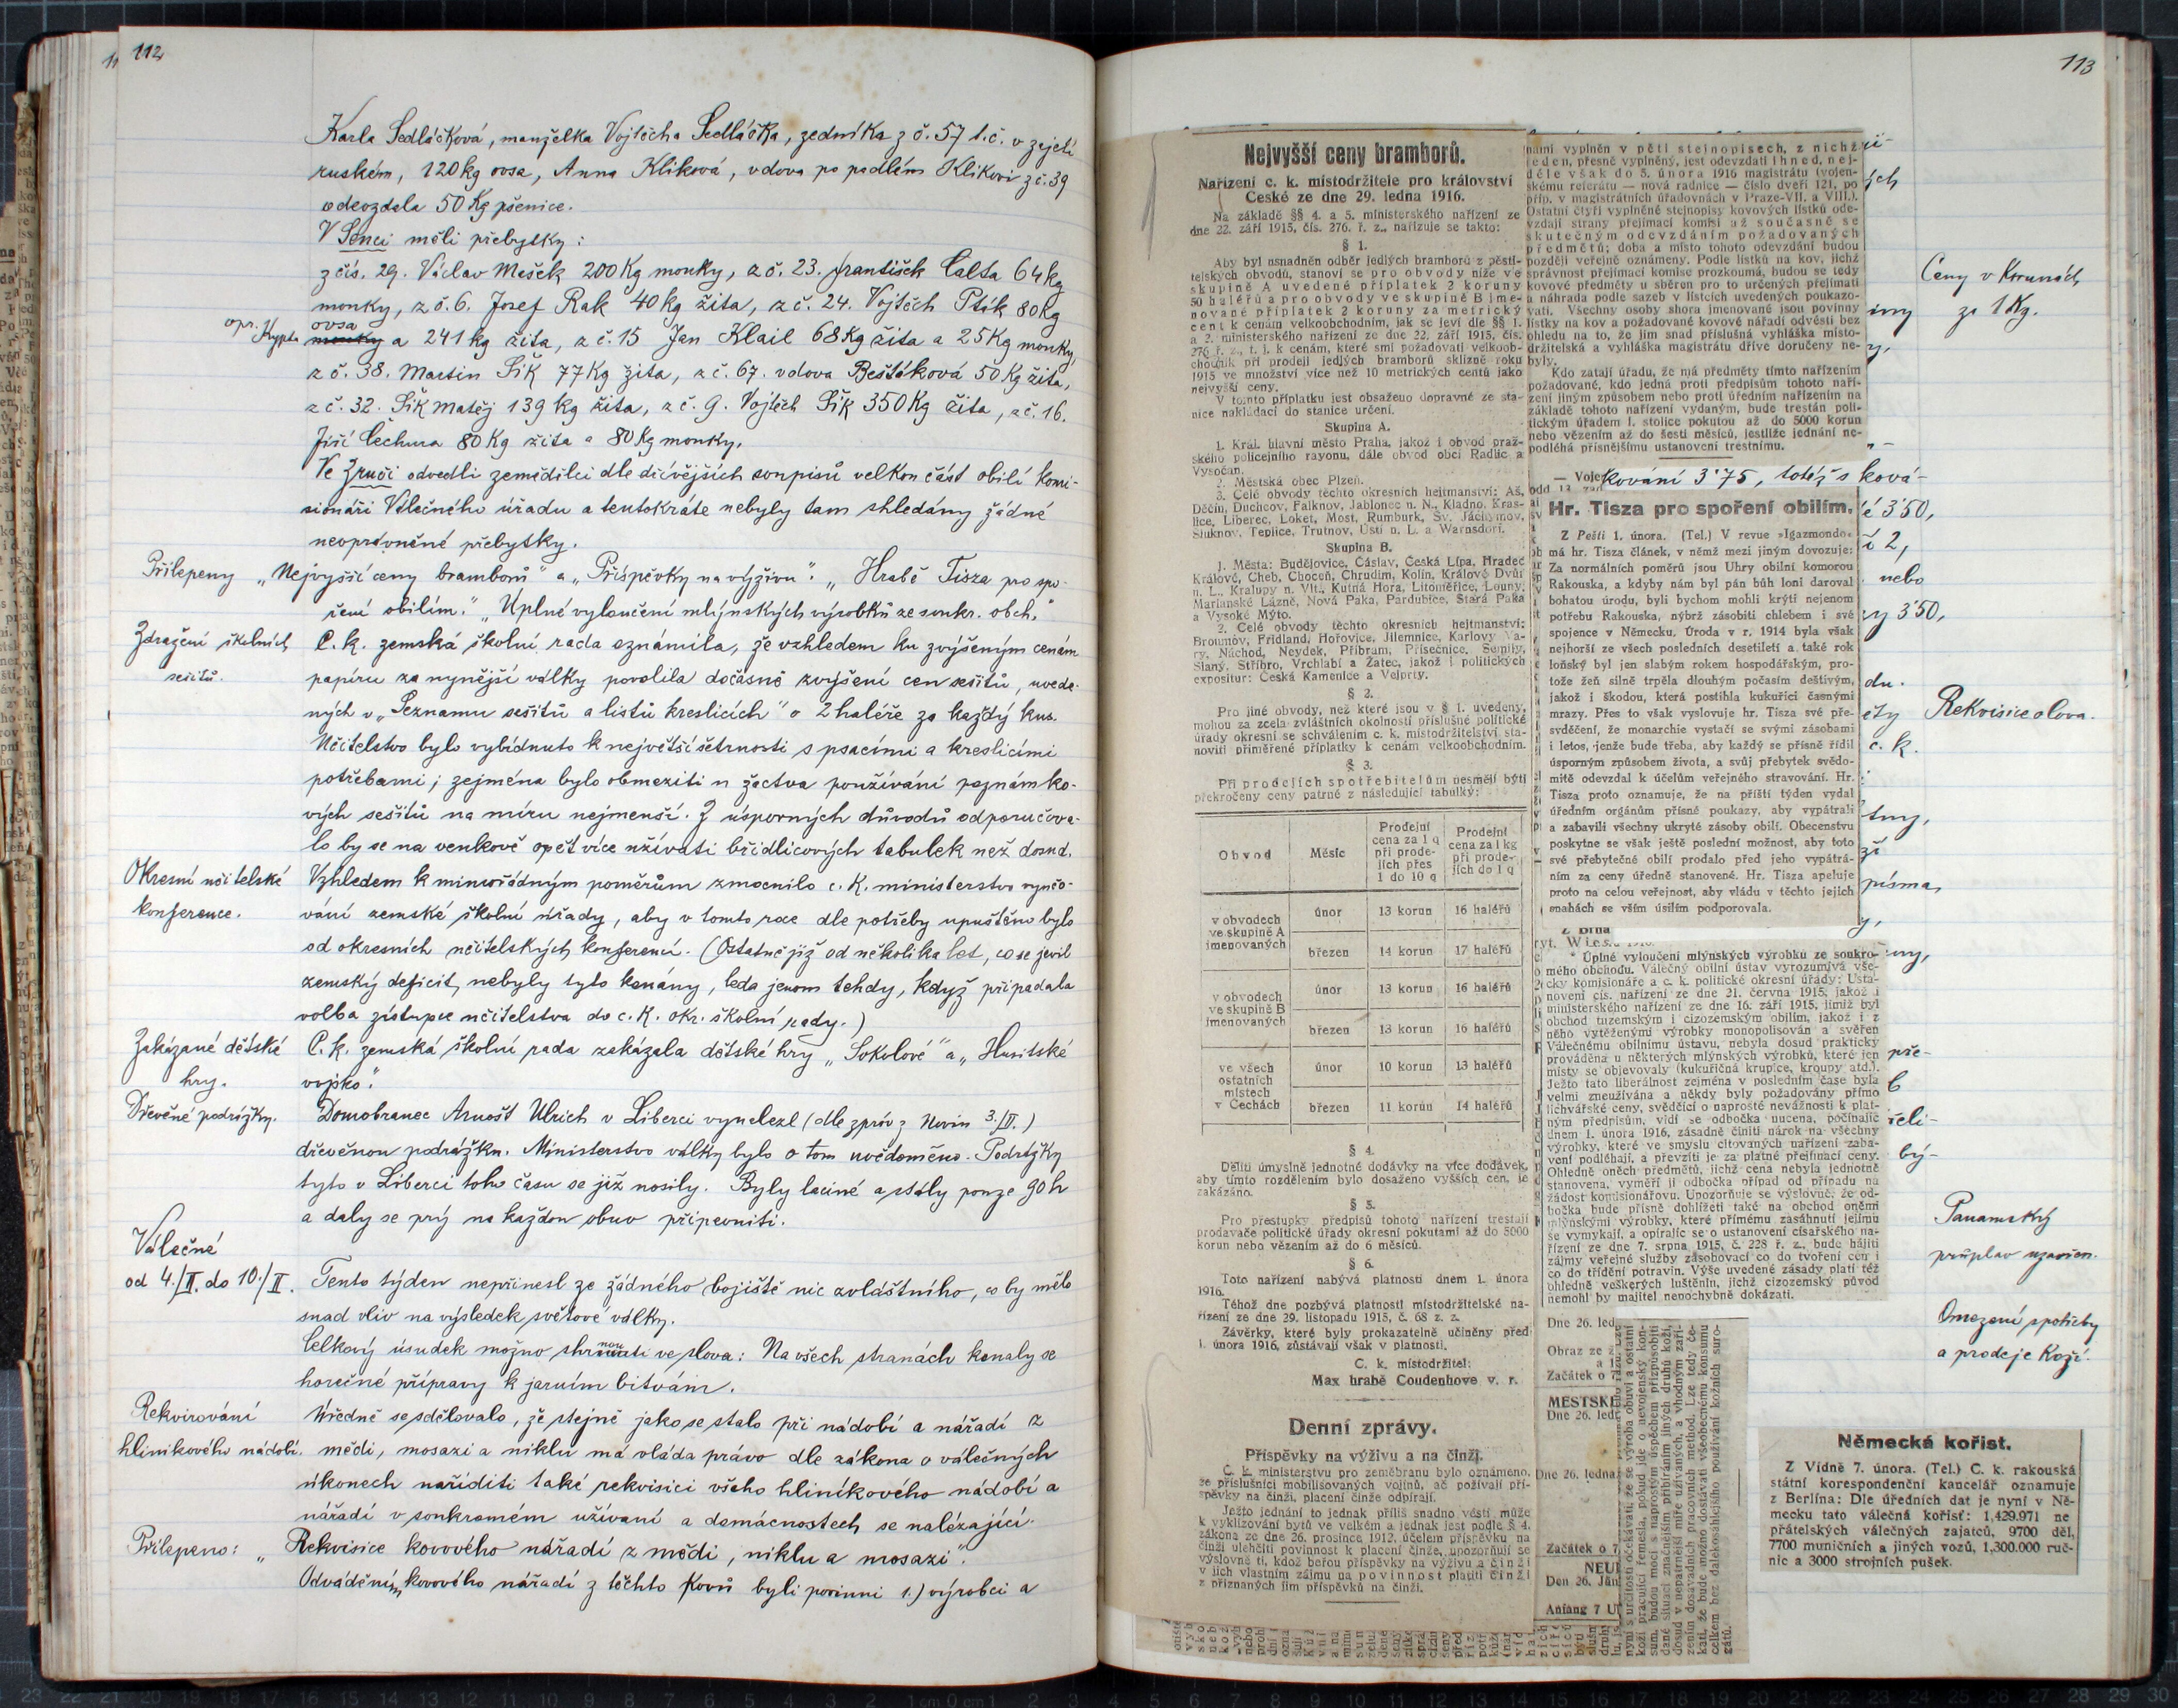 112
Karla Sedláčková, manželka Vojtěcha Sedláčka, zedníka z č. 57 t.č. v zajetí
ruském, 120 kg ovsa, Anna Kliková, vdova po padlém Klikovi z č. 39
odevzdala 50 Kg pšenice.
V Senci měli přebytky:
z čís. 29. Václav Mašek 200 Kg mouky, z č. 23. František Calta 64 kg
mouky, z č. 6. Josef Rak 40 kg žita, z č. 24. Vojtěch Pták 80 kg
opr. Kypta
ovsa
mouky a 241 kg žita, z č. 15 Jan Klail 68 Kg žita a 25 Kg mouky,
z č. 38. Martin Šik 77 Kg žita, z č. 67. vdova Beštáková 50 Kg žita,
z č. 32. Šik Matěj 139 kg žita, z č. 9. Vojtěch Šik 350 Kg žita, z č. 16.
Jiří Čechura 80 Kg žita a 80 Kg mouky.
Ve Zruči odvedli zemědělci dle dřívějších soupisů velkou část obilí komi-
sionáři Válečného úřadu a tentokráte nebyly tam shledány žádné
neoprávněné přebytky.
Přilepeny „Nejvyšší ceny bramborů" a „Příspěvky na výživu". „Hrabě Tisza pro spo-
ření obilím." „Úplné vyloučení mlýnských výrobků ze soukr. obch."
Zdražení školních
sešitů.
C. k. zemská školní rada oznámila, že vzhledem ku zvýšeným cenám
papíru za nynější války povolila dočasné zvýšení cen sešitů, uvede-
ných v „Seznamu sešitů a listů kreslicích" o 2 haléře za každý kus.
Učitelstvo bylo vybídnuto k největší šetrnosti s psacími a kreslicími
potřebami; zejména bylo obmeziti u žactva používání poznámko-
vých sešitů na míru nejmenší. Z úsporných důvodů odporučova-
lo by se na venkově opět více užívati břidlicových tabulek než dosud.
Okresní učitelské
konference.
Vzhledem k mimořádným poměrům zmocnilo c. K. ministerstvo vyučo-
vání zemské školní úřady, aby v tomto roce dle potřeby upuštěno bylo
od okresních učitelských konferencí. (Ostatně již od několika let, co se jevil
zemský deficit, nebyly tyto konány, leda jenom tehdy, když připadala
volba zástupce učitelstva do c. K. okr. školní rady.)
Zakázané dětské
hry.
C. k. zemská školní rada zakázala dětské hry „Sokolové" a „Husitské
vojsko".
Dřevěné podrážky.
Domobranec Arnošt Ulrich v Liberci vynalezl (dle zpráv z Novin 3./II.)
dřevěnou podrážku. Ministerstvo války bylo o tom uvědoměno. Podrážky
tyto v Liberci toho času se již nosily. Byly laciné a stály pouze 90 h
a daly se prý na každou obuv připevniti.
Válečné
od 4./II. do 10./II.
Tento týden nepřinesl ze žádného bojiště nic zvláštního, co by mělo
snad vliv na výsledek světové války.
Celkový úsudek možno shrnouti ve slova: Na všech stranách konaly se
horečné přípravy k jarním bitvám.
Rekvirování
hliníkového nádobí.
Úředně se sdělovalo, že stejně jako se stalo při nádobí a nářadí z
mědi, mosazi a niklu má vláda právo dle zákona o válečných
úkonech naříditi také rekvisici všeho hliníkového nádobí a
nářadí v soukromém užívaní a domácnostech se nalézající.
Přilepeno: „Rekvisice kovového nářadí z mědi, niklu a mosazi".
Odváděním kovového nářadí z těchto kovů byli povinni 1.) výrobci a
113
Nejvyšší ceny bramborů.
Nařízení c. k. místodržitele pro království
České ze dne 29. ledna 1916.
Na základě §§ 4. a 5. ministerského nařízení ze
dne 22. září 1915, čís. 276. ř. z., nařizuje se takto:
§ 1.
Aby byl usnadněn odběr jedlých bramborů z pěsti-
telských obvodů, stanoví se pro obvody níže ve
skupině A uvedené příplatek 2 koruny
50 haléřů a pro obvody ve skupině B jme-
nované příplatek 2 koruny za metrický
cent k cenám velkoobchodním, jak se jeví dle §§ 1.
a 2. ministerského nařízení ze dne 22. září 1915, čís.
276 ř. z., t. j. k cenám, které smí požadovati velkoob-
chodník při prodeji jedlých bramborů sklizně roku
1915 ve množství více než 10 metrických centů jako
nejvyšší ceny.
V tomto příplatku jest obsaženo dopravné ze sta-
nice nakládací do stanice určení.
Skupina A.
1. Král. hlavní město Praha, jakož i obvod praž-
ského policejního rayonu, dále obvod obcí Radlic a
Vysočan.
2. Městská obec Plzeň.
3. Celé obvody těchto okresních hejtmanství: Aš,
Děčín, Duchcov, Falknov, Jablonec n. N., Kladno, Kras-
lice, Liberec, Loket, Most, Rumburk, Sv. Jáchymov,
Šluknov, Teplice, Trutnov, Ústí n. L. a Warnsdorf.
Skupina B.
1. Města: Budějovice, Čáslav, Česká Lípa, Hradec
Králové, Cheb, Choceň, Chrudim, Kolín, Králové Dvůr
n. L., Kralupy n. Vlt., Kutná Hora, Litoměřice, Louny,
Mariánské Lázně, Nová Paka, Pardubice, Stará Paka
a Vysoké Mýto.
2. Celé obvody těchto okresních hejtmanství:
Broumov, Frídland, Hořovice, Jilemnice, Karlovy Va-
ry, Náchod, Neydek, Příbram, Přísečnice, Semily,
Slaný, Stříbro, Vrchlabí a Žatec, jakož i politických
expositur: Česká Kamenice a Vejprty.
§ 2.
Pro jiné obvody, než které jsou v § 1. uvedeny,
mohou za zcela zvláštních okolností příslušné politické
úřady okresní se schválením c. k. místodržitelství sta-
noviti přiměřené příplatky k cenám velkoobchodním.
§ 3.
Při prodejích spotřebitelům nesmějí býti
překročeny ceny patrné z následující tabulky:
Obvod Měsíc Prodejní cena za 1 q při prode- jích přes 1 do 10 q Prodejní cena za 1 kg při prode- jích do 1 q
v obvodech ve skupině A jmenovaných únor 13 korun 16 haléřů
březen 14 korun 17 haléřů
v obvodech ve skupině B jmenovaných únor 13 korun 16 haléřů
březen 13 korun 16 haléřů
ve všech ostatních místech v Čechách únor 10 korun 13 haléřů
březen 11 korun 14 haléřů
§ 4.
Děliti úmyslně jednotné dodávky na více dodávek,
aby tímto rozdělením bylo dosaženo vyšších cen, je
zakázáno.
§ 5.
Pro přestupky předpisů tohoto nařízení trestají
prodavače politické úřady okresní pokutami až do 5000
korun nebo vězením až do 6 měsíců.
§ 6.
Toto nařízení nabývá platnosti dnem 1. února
1916.
Téhož dne pozbývá platnosti místodržitelské na-
řízení ze dne 29. listopadu 1915, č. 68 z. z.
Závěrky, které byly prokazatelně učiněny před
1. února 1916, zůstávají však v platnosti.
C. k. místodržitel:
Max hrabě Coudenhove v. r.
Denní zprávy.
Příspěvky na výživu a na činži.
C. k. ministerstvu pro zeměbranu bylo oznámeno,
že příslušníci mobilisovaných vojínů, ač požívali pří-
spěvky na činži, placení činže odpírají.
Ježto jednání to jednak příliš snadno vésti může
k vyklizování bytů ve velkém a jednak jest podle § 4.
zákona ze dne 26. prosince 1912, účelem příspěvku na
činži ulehčiti povinnost k placení činže, upozorňují se
výslovně ti, kdož berou příspěvky na výživu a činži
v jich vlastním zájmu na povinnost platiti činži
z přiznaných jim příspěvků na činži.
námi vyplněn v pěti stejnopisech, z nichž
jeden, přesně vyplněný, jest odevzdati ihned, nej-
déle však do 5. února 1916 magistrátu (vojen-
skému referátu — nová radnice — číslo dveří 121, po
příp. v magistrátních úřadovnách v Praze-VII. a VIII.).
Ostatní čtyři vyplněné stejnopisy kovových lístků ode-
vzdají strany přejímací komisi až současně se
skutečným odevzdáním požadovaných
předmětů; doba a místo tohoto odevzdání budou
později veřejně oznámeny. Podle lístků na kov, jichž
správnost přejímací komise prozkoumá, budou se tedy
kovové předměty u sběren pro to určených přejímati
a náhrada podle sazeb v lístcích uvedených poukazo-
vati. Všechny osoby shora jmenované jsou povinny
lístky na kov a požadované kovové nářadí odvésti bez
ohledu na to, že jim snad příslušná vyhláška místo-
držitelská a vyhláška magistrátu dříve doručeny ne-
byly.
Kdo zatají úřadu, že má předměty tímto nařízením
požadované, kdo jedná proti předpisům tohoto naří-
zení jiným způsobem nebo proti úředním nařízením na
základě tohoto nařízení vydaným, bude trestán poli-
tickým úřadem I. stolice pokutou až do 5000 korun
nebo vězením až do šesti měsíců, jestliže jednání ne-
podléhá přísnějšímu ustanovení trestnímu.
kování 3'75, totéž s ková-
Hr. Tisza pro spoření obilím.
Z Pešti 1. února. (Tel.) V revue »Igazmondo«
má hr. Tisza článek, v němž mezi jiným dovozuje:
Za normálních poměrů jsou Uhry obilní komorou
Rakouska, a kdyby nám byl pán bůh loni daroval
bohatou úrodu, byli bychom mohli krýti nejenom
potřebu Rakouska, nýbrž zásobiti chlebem i své
spojence v Německu. Úroda v r. 1914 byla však
nejhorší ze všech posledních desetiletí a také rok
loňský byl jen slabým rokem hospodářským, pro-
tože žeň silně trpěla dlouhým počasím deštivým,
jakož i škodou, která postihla kukuřici časnými
mrazy. Přes to však vyslovuje hr. Tisza své pře-
svědčení, že monarchie vystačí se svými zásobami
i letos, jenže bude třeba, aby každý se přísně řídil
úsporným způsobem života, a svůj přebytek svědo-
mitě odevzdal k účelům veřejného stravování. Hr.
Tisza proto oznamuje, že na příští týden vydal
úředním orgánům přísné poukazy, aby vypátrali
a zabavili všechny ukryté zásoby obilí. Obecenstvu
poskytne se však ještě poslední možnost, aby toto
své přebytečné obilí prodalo před jeho vypátrá-
ním za ceny úředně stanovené. Hr. Tisza apeluje
proto na celou veřejnost, aby vládu v těchto jejích
snahách se vším úsilím podporovala.
* Úplné vyloučení mlýnských výrobků ze soukro-
mého obchodu. Válečný obilní ústav vyrozumívá vše-
cky komisionáře a c. k. politické okresní úřady: Usta-
novení cís. nařízení ze dne 21. června 1915, jakož i
ministerského nařízení ze dne 16. září 1915, jimiž byl
obchod tuzemským i cizozemským obilím, jakož i z
něho vytěženými výrobky monopolisován a svěřen
Válečnému obilnímu ústavu, nebyla dosud prakticky
prováděna u některých mlýnských výrobků, které jen
místy se objevovaly (kukuřičná krupice, kroupy atd.).
Ježto tato liberálnost zejména v posledním čase byla
velmi zneužívána a někdy byly požadovány přímo
lichvářské ceny, svědčící o naprosté nevážnosti k plat-
ným předpisům, vidí se odbočka nucena, počínajíc
dnem 1. února 1916, zásadně činiti nárok na všechny
výrobky, které ve smyslu citovaných nařízení zaba-
vení podléhají, a převzíti je za platné přejímací ceny.
Ohledně oněch předmětů, jichž cena nebyla jednotně
stanovena, vyměří ji odbočka případ od případu na
žádost komisionářovu. Upozorňuje se výslovně, že od-
bočka bude přísně dohlížeti také na obchod oněmi
mlýnskými výrobky, které přímému zasáhnutí jejímu
se vymykají, a opírajíc se o ustanovení císařského na-
řízení ze dne 7. srpna 1915, č. 228 ř. z., bude hájiti
zájmy veřejné služby zásobovací co do tvoření cen i
co do třídění potravin. Výše uvedené zásady platí též
ohledně veškerých luštěnin, jichž cizozemský původ
nemohl by majitel nepochybně dokázati.
Dne 26. led
Obraz ze
Začátek o 7
MĚSTSKÉ
Dne 26. led
Dne 26. ledna
Začátek o 7
NEU
Den 26. Jän
Anfang 7 U
Ceny v Korunách
za 1 Kg.
é 3'50,
2,
nebo
3'50,
du.
Rekvisice olova.
c. k.
písma,
pře-
bý-
Panamský
průplav uzavřen.
Omezení spotřeby
a prodeje Koží.
Německá kořist.
Z Vídně 7. února. (Tel.) C. k. rakouská
státní korespondenční kancelář oznamuje
z Berlína: Dle úředních dat je nyní v Ně-
mecku tato válečná kořisť: 1,429.971 ne
přátelských válečných zajatců, 9700 děl,
7700 muničních a jiných vozů, 1,300.000 ruč-
nic a 3000 strojních pušek.